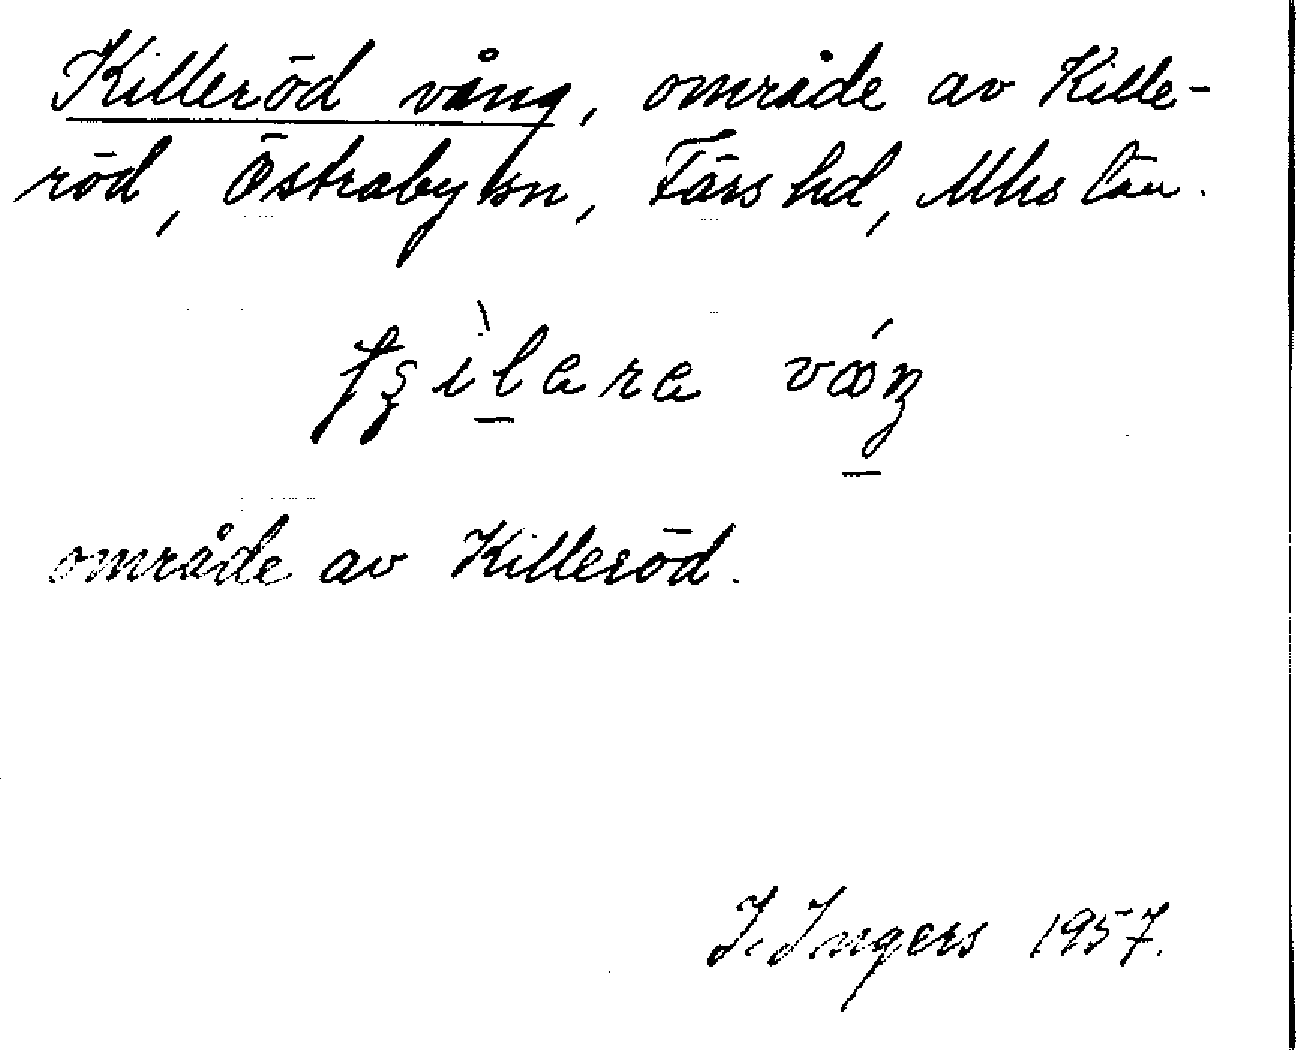 Killeröd vång, område av Kille-
röd, Östraby sn, Färs hd, Mhs län.
område av Killeröd.
I. Ingers 1957.